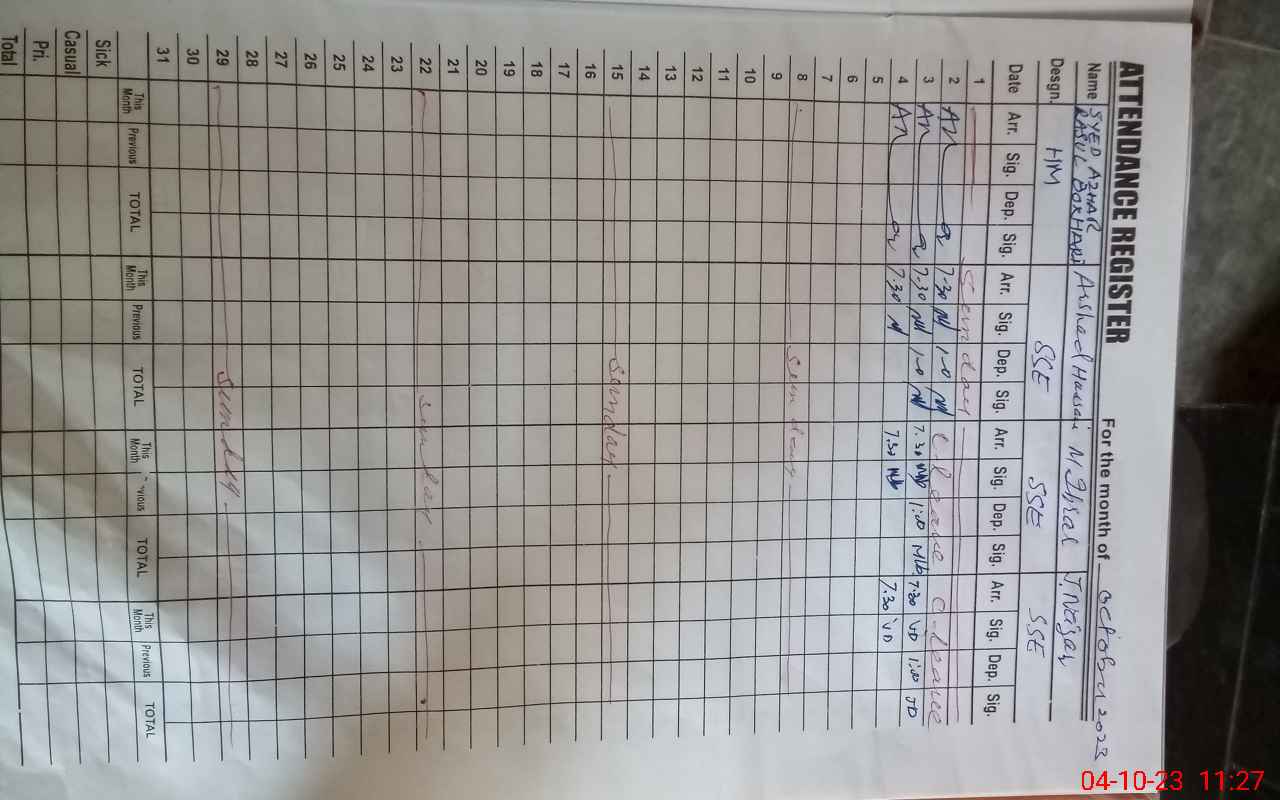 ATTENDANCE REGISTER For the month of October 2023
Name SYED AZHAR RASUL BOKHARI Arshad Hassain M Iqbal J. Nazar
Desgn. HM SSE SSE SSE
Date Arr. Sig. Dep. Sig. Arr. Sig. Dep. Sig. Arr. Sig. Dep. Sig. Arr. Sig. Dep. Sig.
1 Sunday
2 7.30 1-0 C. Leave C. Leave
3 7.30 1-0 7.30 1:00 7.30 1:00
4 7.30 7.30 7.30
5
6
7
8 Sunday
9
10
11
12
13
14
15 Sunday
16
17
18
19
20
21
22 Sunday
23
24
25
26
27
28
29 Sunday
30
31
This Month Previous TOTAL This Month Previous TOTAL This Month vious TOTAL This Month Previous TOTAL
Sick
Casual
Pri.
Total
04-10-23 11:27